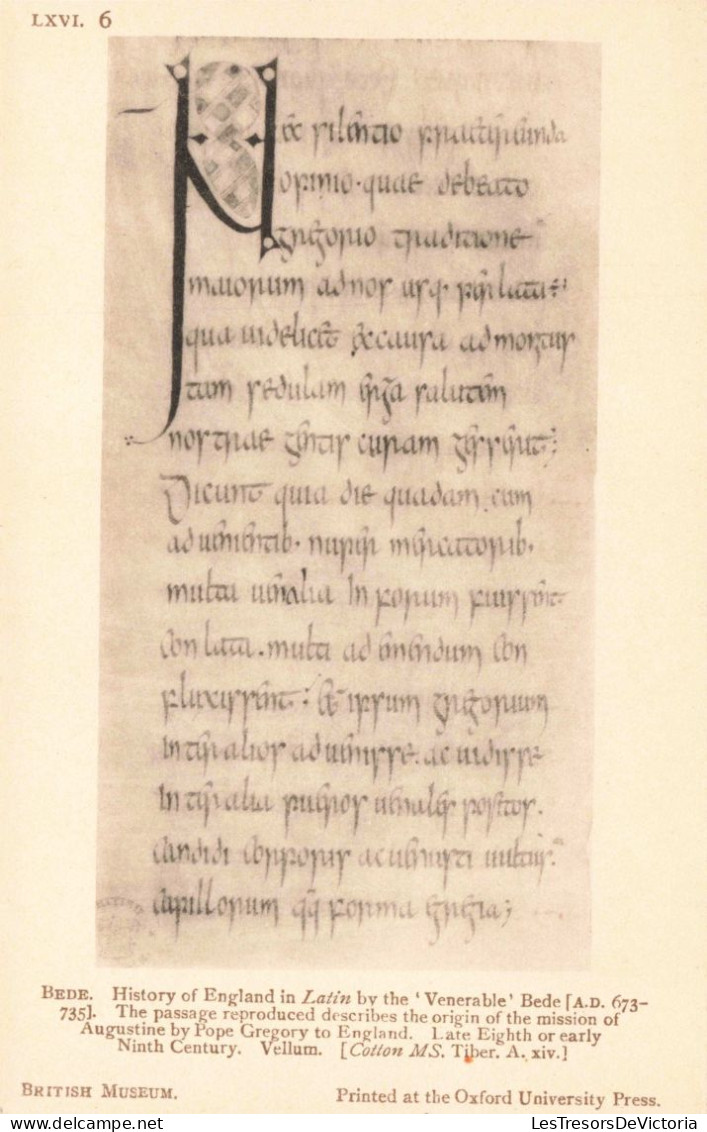 LXVI. 6
Nec silentio praetereunda
opinio. quae debeato
gregorio traditione
maiorum adnos usq· perlata÷;
qua uidelicet ex causa admonitus
tam sedulam erga salutem
nostrae gentis curam gesserit;
Dicunt quia die quadam cum
aduenientib· nuper mercatorib·
multa uenalia in forum fuissent
conlata. multi ad emendum con
fluxissent; et ipsum gregorium
inter alios aduenisse. ac uidisse
inter alia pueros uenales positos.
candidi corporis ac uenusti uultus.
capillorum qq forma egregia;
BEDE. History of England in Latin by the 'Venerable' Bede [A.D. 673–
735]. The passage reproduced describes the origin of the mission of
Augustine by Pope Gregory to England. Late Eighth or early
Ninth Century. Vellum. [Cotton MS. Tiber. A. xiv.]
BRITISH MUSEUM. Printed at the Oxford University Press.
LesTresorsDeVictoria